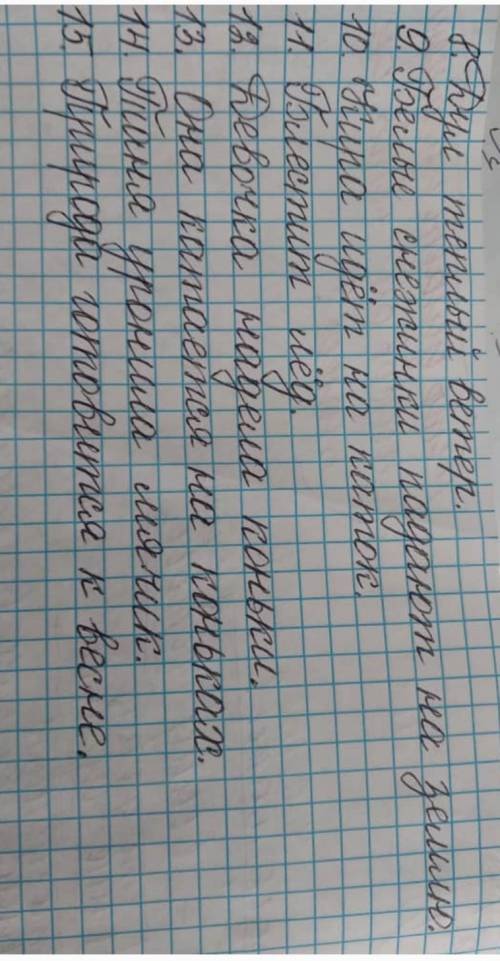 8. Дул теплый ветер.
9. Белые снежинки падают на землю.
10. Кира идёт на каток.
11. Блестит лёд.
12. Девочка надела коньки.
13. Она катается на коньках.
14. Тиня уронила мячик.
15. Природа готовится к весне.